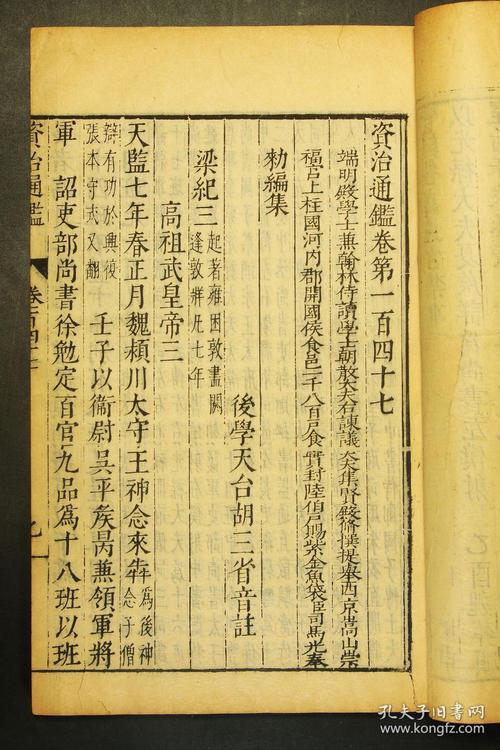 資治通鑑卷第一百四十七
端明殿學士兼翰林侍讀學士朝散大夫右諫議大夫集賢殿脩撰提舉西京嵩山崇
福宮上柱國河內郡開國侯食邑一千八百戶食實封陸伯戶賜紫金魚袋臣司馬光奉
勑編集
後學天台胡三省音註
梁紀三
起著雍困敦盡閼
逢敦牂凡七年
高祖武皇帝三
天監七年春正月魏潁川太守王神念來奔
爲後神
念子僧
辯有功於興復
張本守式又翻
壬子以衞尉吳平矦昺兼領軍將
軍
詔吏部尚書徐勉定百官九品爲十八班以班
資治通鑑
卷一百四十七
孔夫子旧书网
www.kongfz.com